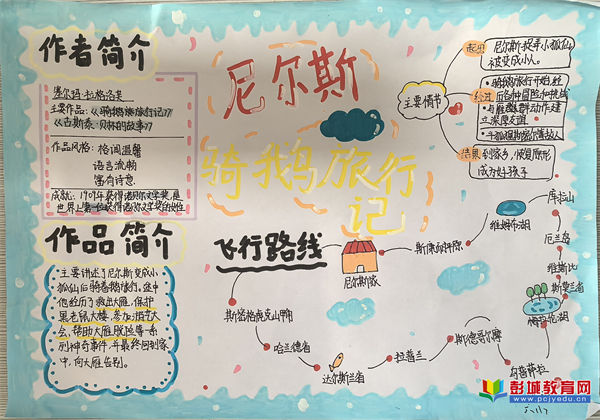 作者简介
塞尔玛·拉格洛芙
主要作品:《骑鹅旅行记》
《古斯泰·贝林的故事》
作品风格:格调温馨
语言流畅
富有诗意
成就:1909年获得诺贝尔文学奖,是
世界上第一位获得诺贝尔文学奖的女性
作品简介
主要讲述了尼尔斯变成小
狐仙后骑着鹅旅行。途中
他经历了救出大雁,保护
黑老鼠大楼,参加
会,帮助大雁脱险等一系
列神奇事件,并最终回到家
中,向大雁告别。
尼尔斯
骑鹅旅行
记
主要情节
起因
尼尔斯捉弄小狐仙
被变成小人。
经过
骑鹅旅行开始经
历各种冒险和挑战
与雁群动作建
立深厚友谊
与狐狸斯密尔
结果
到家乡,恢复原形
成为好孩子
飞行路线
尼尔斯家
斯康
维姆布湖
库拉山
厄兰岛
维斯比
斯莫兰省
梅克伦湖
乌普萨拉
斯德哥尔摩
拉普兰
达尔斯兰省
哈兰德省
彭城教育网
www.pcjyedu.cn